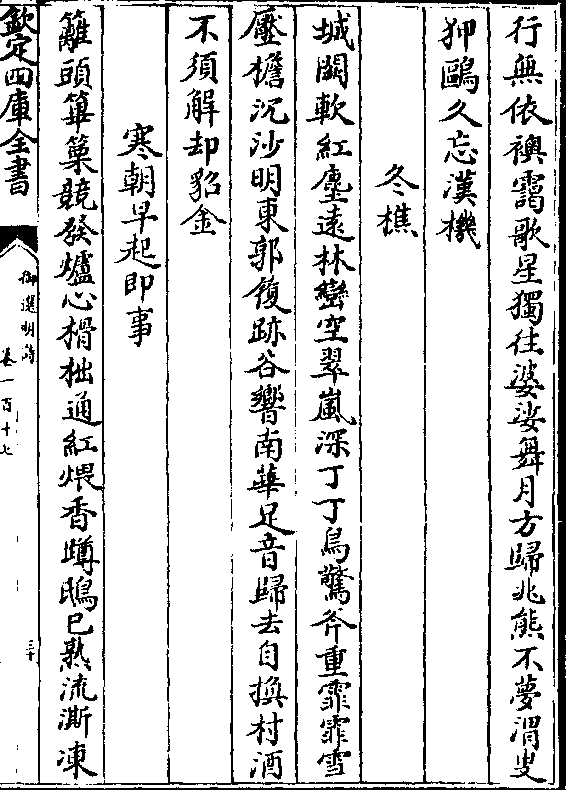 行無依襖靄歌星獨往婆娑舞月方歸兆熊不夢渭叟
狎鷗久忘漢機
冬樵
城闕軟紅塵遠林巒空翠嵐深丁丁鳥驚斧重霏霏雪
壓檐沉沙明東郭履跡谷響南華足音歸去自換村酒
不須解却貂金
寒朝早起即事
籬頭篳篥競發爐心榾柮通紅煨香蹲鴟已熟流澌凍
欽定四庫全書
御選明詩
卷一百十七
三十